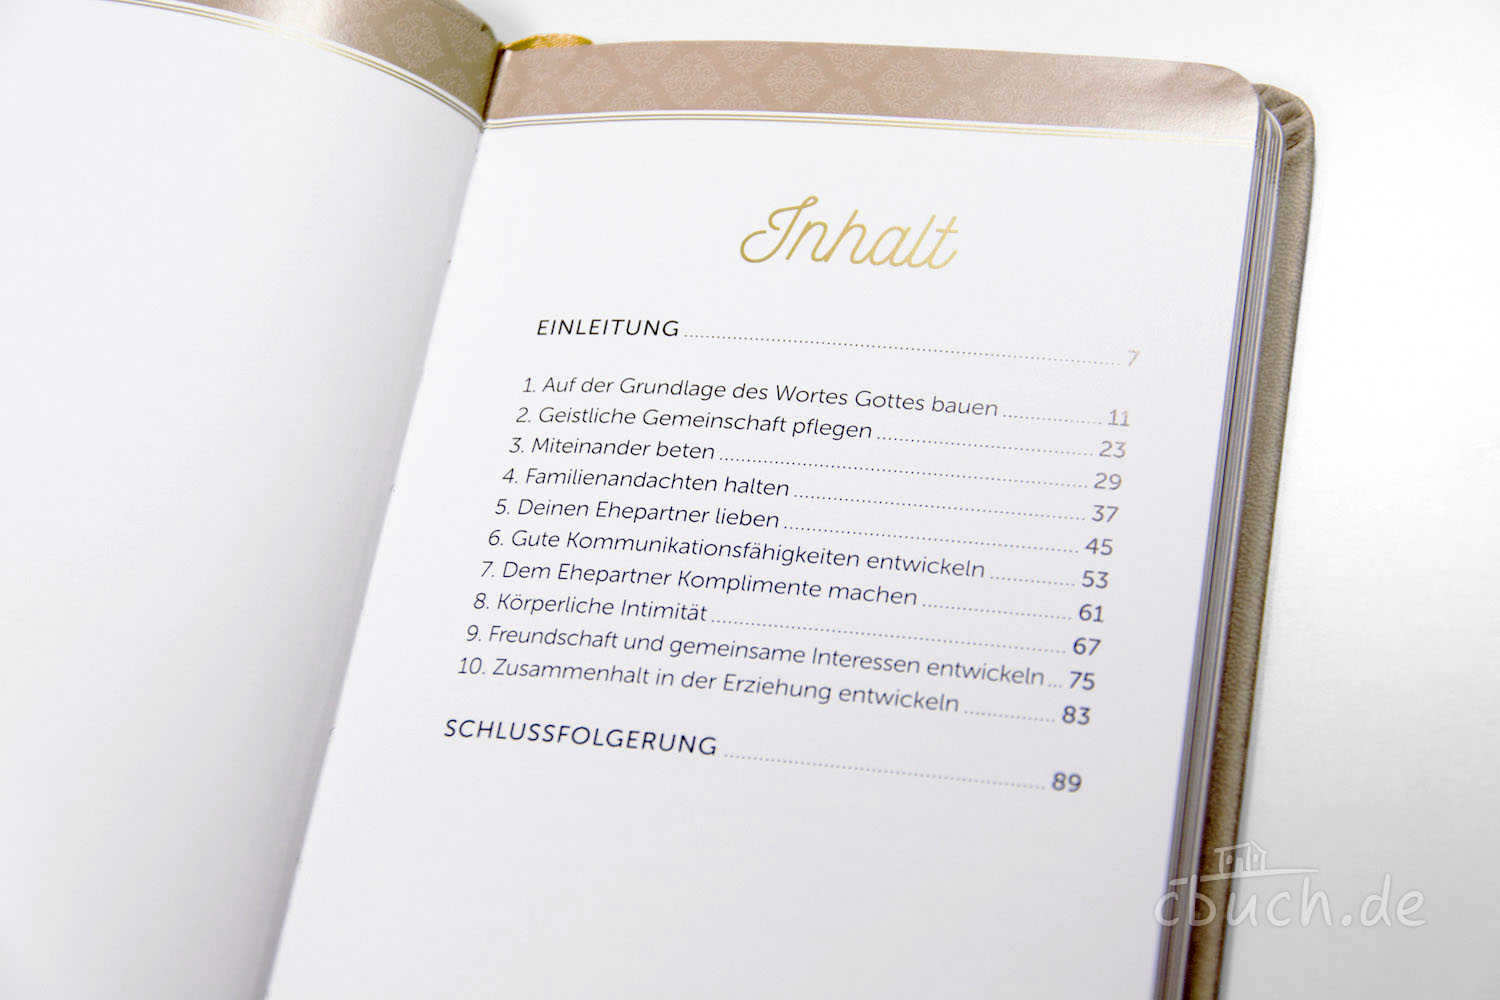 Inhalt
EINLEITUNG ........ 7
1. Auf der Grundlage des Wortes Gottes bauen ........ 11
2. Geistliche Gemeinschaft pflegen ........ 23
3. Miteinander beten ........ 29
4. Familienandachten halten ........ 37
5. Deinen Ehepartner lieben ........ 45
6. Gute Kommunikationsfähigkeiten entwickeln ........ 53
7. Dem Ehepartner Komplimente machen ........ 61
8. Körperliche Intimität ........ 67
9. Freundschaft und gemeinsame Interessen entwickeln ... 75
10. Zusammenhalt in der Erziehung entwickeln ........ 83
SCHLUSSFOLGERUNG ........ 89
cbuch.de